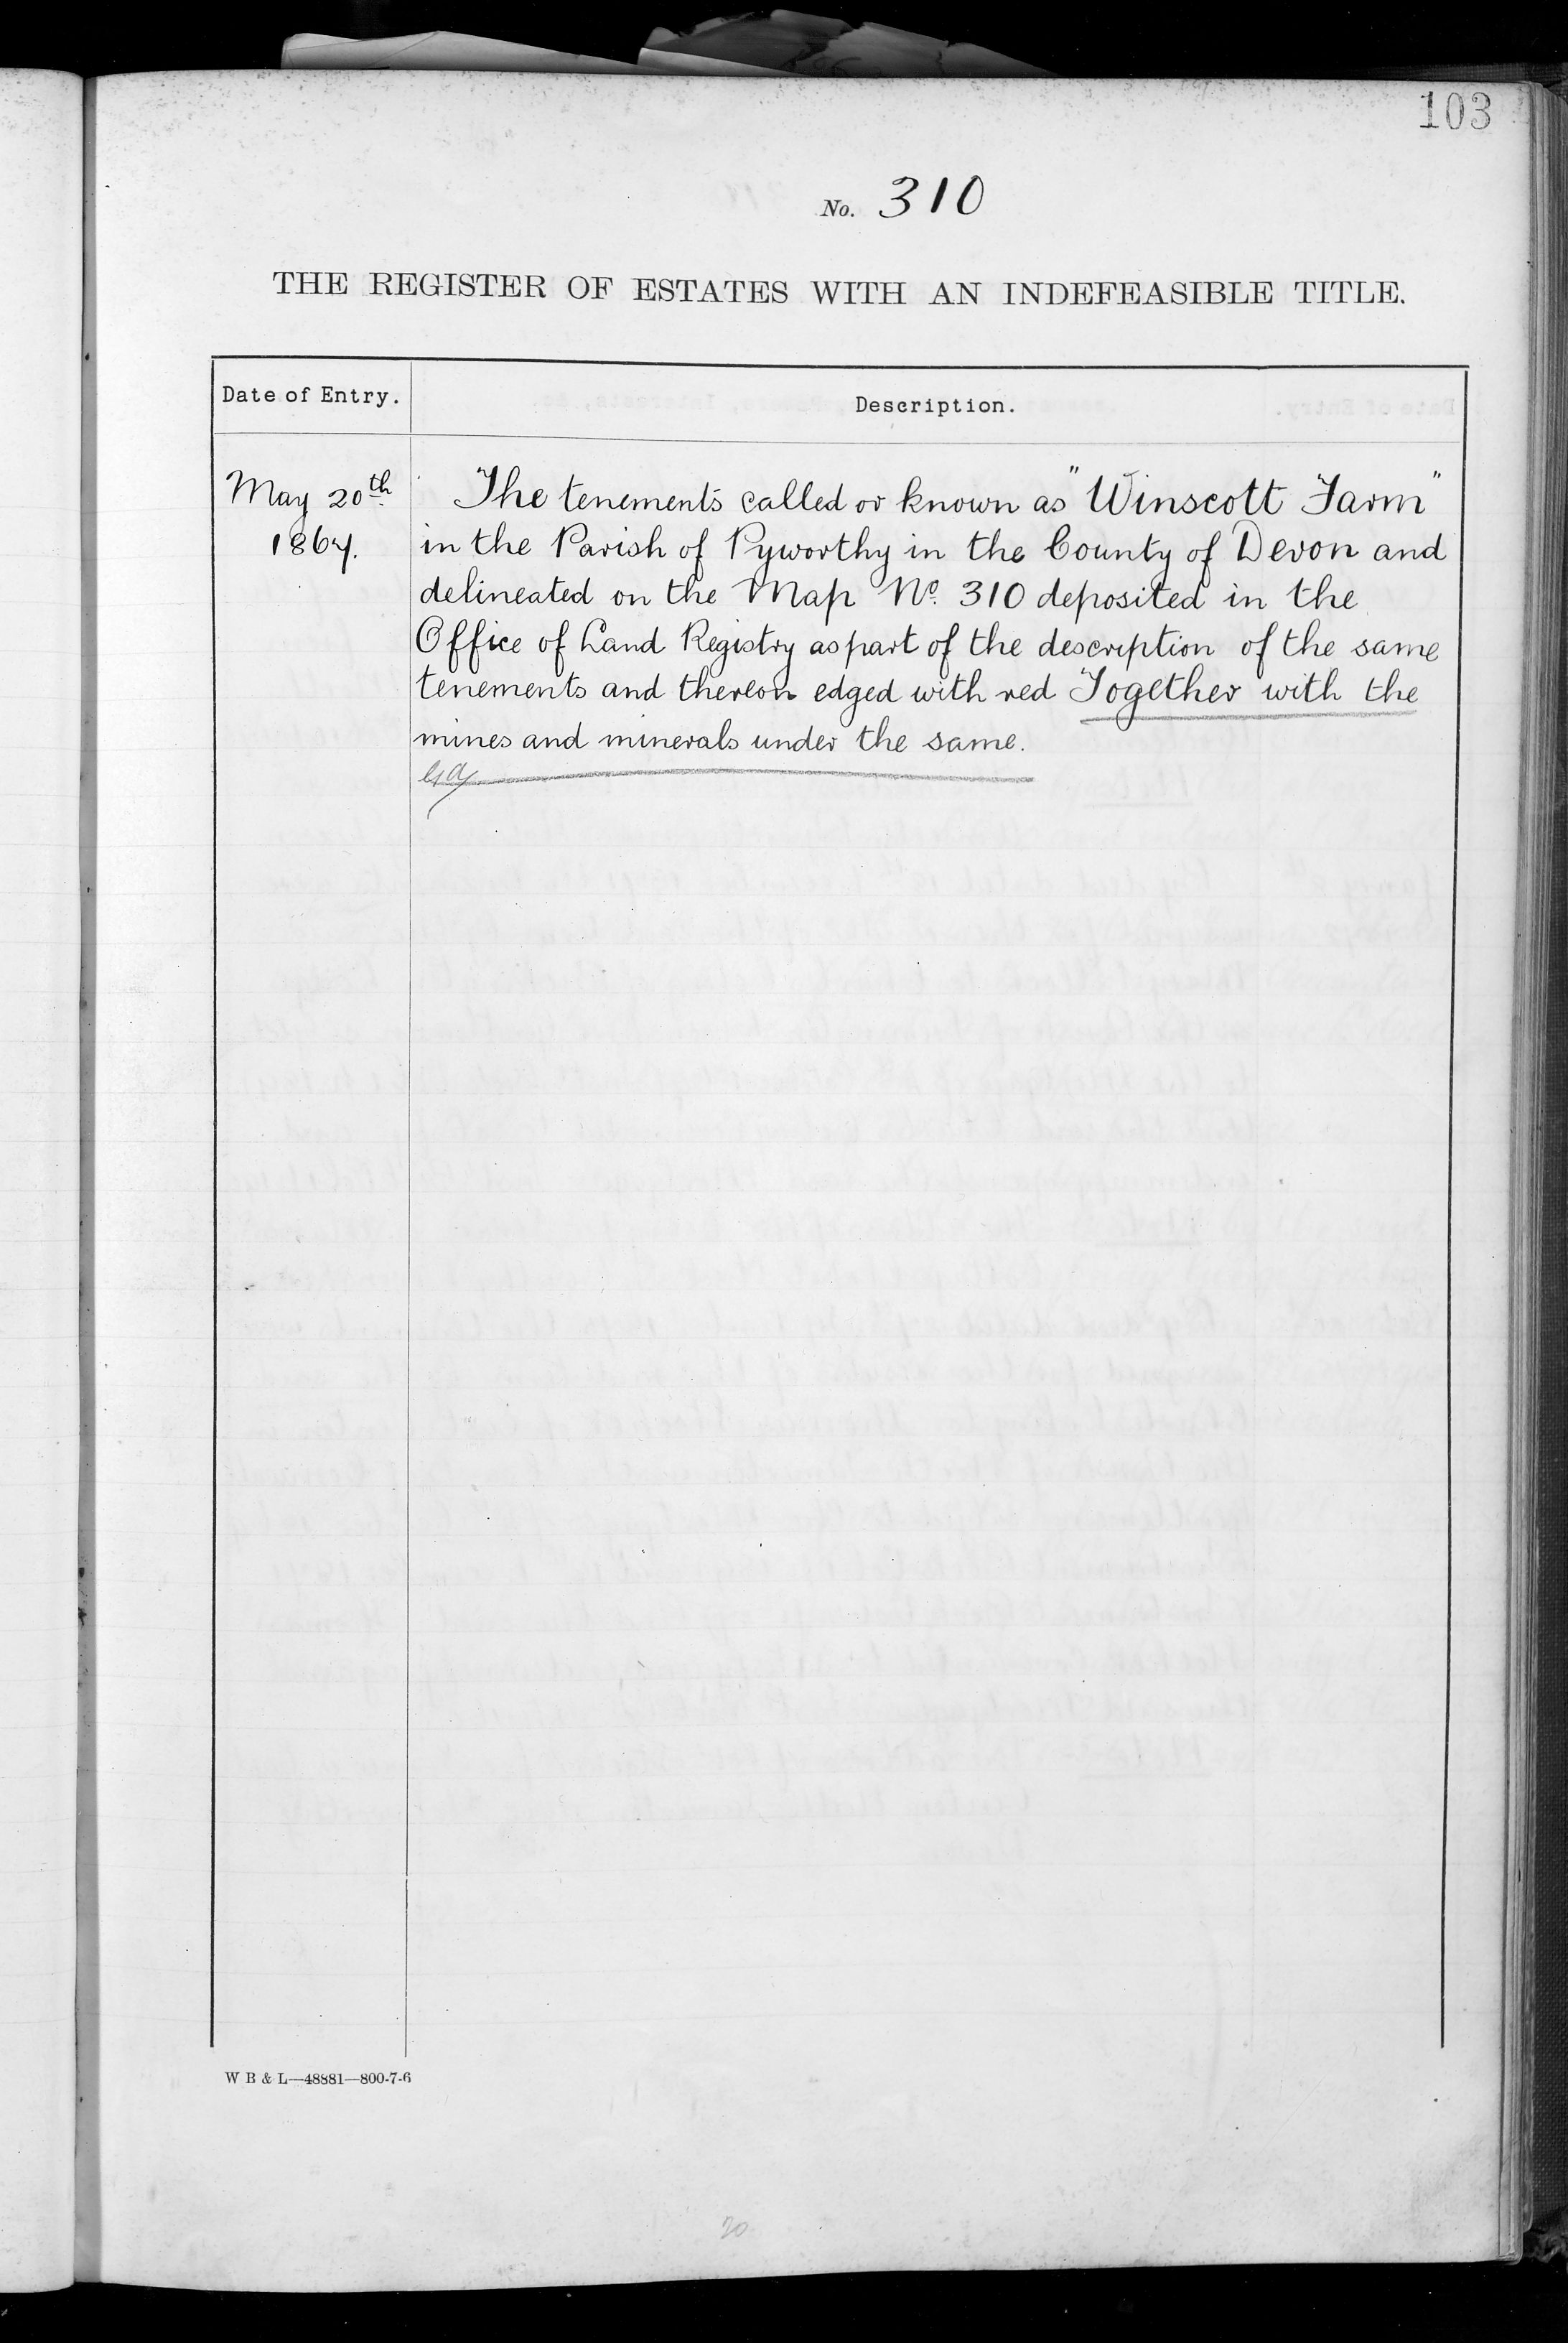 103
No. 310
THE REGISTER OF ESTATES WITH AN INDEFEASIBLE TITLE.
Date of Entry.
Description.
May 20th
1867.
The tenements called or known as "Winscott Farm"
in the Parish of Pyworthy in the County of Devon and
delineated on the Map No. 310 deposited in the
Office of Land Registry as part of the description of the same
tenements and thereon edged with red Together with the
mines and minerals under the same.
W B & L—48881—800-7-6
20